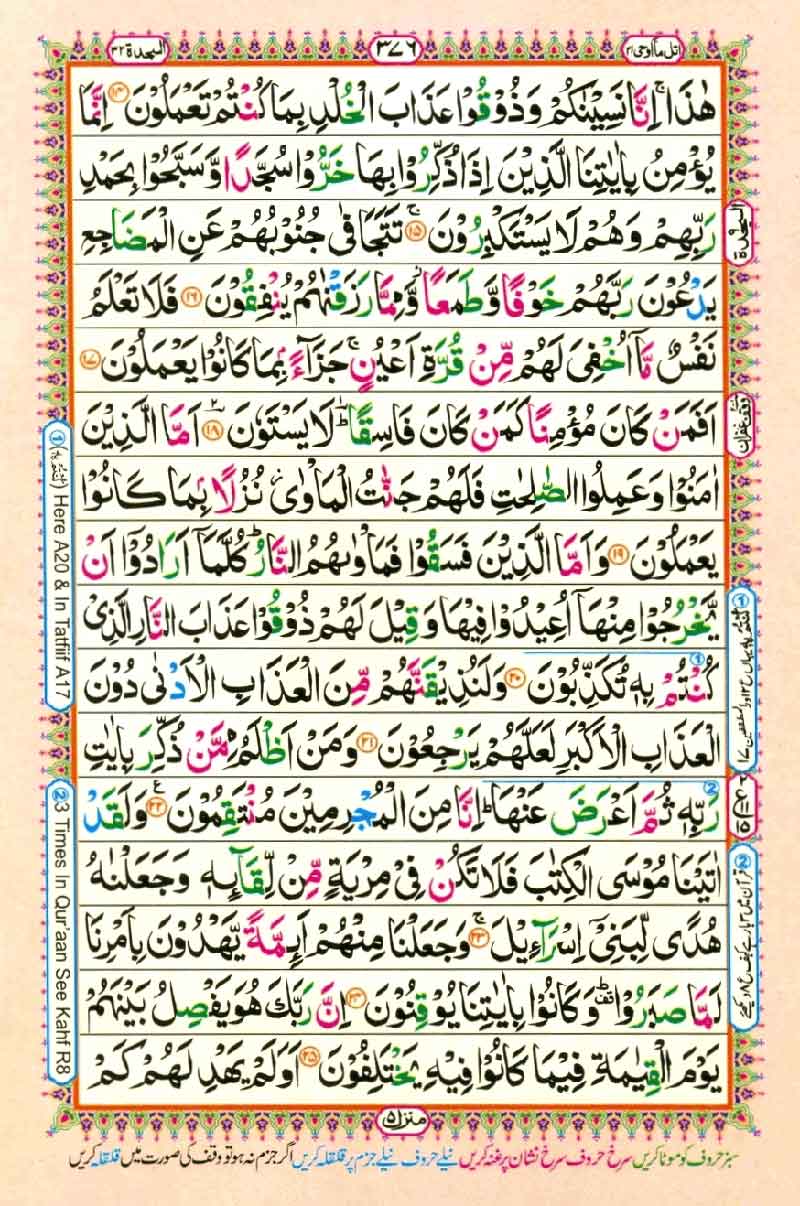 اتل ما اوحی ۲۱
۳۷۶
السجدة ۳۲
هٰذَا ۚ اِنَّا نَسِيْنٰكُمْ وَذُوْقُوْا عَذَابَ الْخُلْدِ بِمَا كُنْتُمْ تَعْمَلُوْنَ ۝۱۴ اِنَّمَا
يُؤْمِنُ بِاٰيٰتِنَا الَّذِيْنَ اِذَا ذُكِّرُوْا بِهَا خَرُّوْا سُجَّدًا وَّسَبَّحُوْا بِحَمْدِ
رَبِّهِمْ وَهُمْ لَا يَسْتَكْبِرُوْنَ ۝۱۵ تَتَجَافٰى جُنُوْبُهُمْ عَنِ الْمَضَاجِعِ
يَدْعُوْنَ رَبَّهُمْ خَوْفًا وَّطَمَعًا ۫ وَّمِمَّا رَزَقْنٰهُمْ يُنْفِقُوْنَ ۝۱۶ فَلَا تَعْلَمُ
نَفْسٌ مَّآ اُخْفِيَ لَهُمْ مِّنْ قُرَّةِ اَعْيُنٍ ۚ جَزَآءًۢ بِمَا كَانُوْا يَعْمَلُوْنَ ۝۱۷
اَفَمَنْ كَانَ مُؤْمِنًا كَمَنْ كَانَ فَاسِقًا ؕ لَا يَسْتَوٗنَ ۝۱۸ اَمَّا الَّذِيْنَ
اٰمَنُوْا وَعَمِلُوا الصّٰلِحٰتِ فَلَهُمْ جَنّٰتُ الْمَاْوٰى ؗ نُزُلًۢا بِمَا كَانُوْا
يَعْمَلُوْنَ ۝۱۹ وَاَمَّا الَّذِيْنَ فَسَقُوْا فَمَاْوٰىهُمُ النَّارُ ؕ كُلَّمَآ اَرَادُوْٓا اَنْ
يَّخْرُجُوْا مِنْهَآ اُعِيْدُوْا فِيْهَا وَقِيْلَ لَهُمْ ذُوْقُوْا عَذَابَ النَّارِ الَّذِيْ
كُنْتُمْ بِهٖ تُكَذِّبُوْنَ ۝۲۰ وَلَنُذِيْقَنَّهُمْ مِّنَ الْعَذَابِ الْاَدْنٰى دُوْنَ
الْعَذَابِ الْاَكْبَرِ لَعَلَّهُمْ يَرْجِعُوْنَ ۝۲۱ وَمَنْ اَظْلَمُ مِمَّنْ ذُكِّرَ بِاٰيٰتِ
رَبِّهٖ ثُمَّ اَعْرَضَ عَنْهَا ؕ اِنَّا مِنَ الْمُجْرِمِيْنَ مُنْتَقِمُوْنَ ۝۲۲ وَلَقَدْ
اٰتَيْنَا مُوْسَى الْكِتٰبَ فَلَا تَكُنْ فِيْ مِرْيَةٍ مِّنْ لِّقَآئِهٖ وَجَعَلْنٰهُ
هُدًى لِّبَنِيْٓ اِسْرَآءِيْلَ ۝۲۳ وَجَعَلْنَا مِنْهُمْ اَئِمَّةً يَّهْدُوْنَ بِاَمْرِنَا
لَمَّا صَبَرُوْا ۫ؕ وَكَانُوْا بِاٰيٰتِنَا يُوْقِنُوْنَ ۝۲۴ اِنَّ رَبَّكَ هُوَ يَفْصِلُ بَيْنَهُمْ
يَوْمَ الْقِيٰمَةِ فِيْمَا كَانُوْا فِيْهِ يَخْتَلِفُوْنَ ۝۲۵ اَوَلَمْ يَهْدِ لَهُمْ كَمْ
السجدة
وقف غفران
① Here A20 & In Tatfiif A17
② 3 Times In Qur'aan See Kahf R8
منزل ۵
سبز حروف کو موٹا کریں سرخ حروف سرخ نشان پر غنہ کریں نیلے حروف نیلے جزم پر قلقلہ کریں اگر جزم نہ ہو تو وقف کی صورت میں قلقلہ کریں